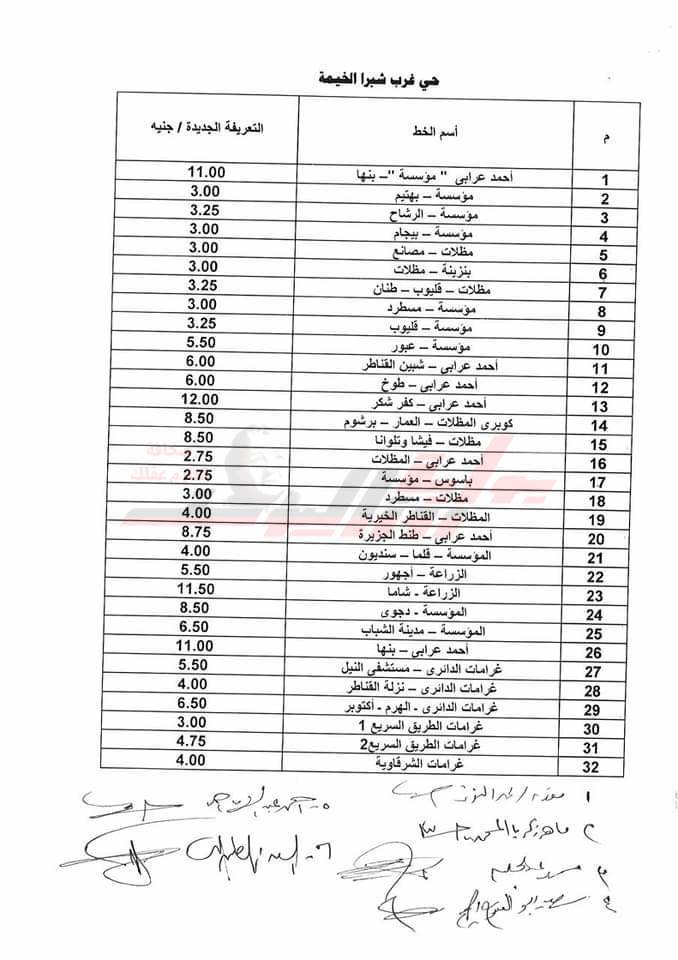 حي غرب شبرا الخيمة
م أسم الخط التعريفة الجديدة / جنيه
1 أحمد عرابي " مؤسسة " – بنها 11.00
2 مؤسسة – بهتيم 3.00
3 مؤسسة – الرشاح 3.25
4 مؤسسة – بيجام 3.00
5 مظلات – مصانع 3.00
6 بنزينة – مظلات 3.00
7 مظلات – قليوب – طنان 3.25
8 مؤسسة – مسطرد 3.00
9 مؤسسة – قليوب 3.25
10 مؤسسة – عبور 5.50
11 أحمد عرابي – شبين القناطر 6.00
12 أحمد عرابي – طوخ 6.00
13 أحمد عرابي – كفر شكر 12.00
14 كوبرى المظلات – العمار – برشوم 8.50
15 مظلات – فيشا وتلوانا 8.50
16 أحمد عرابي – المظلات 2.75
17 باسوس – مؤسسة 2.75
18 مظلات – مسطرد 3.00
19 المظلات – القناطر الخيرية 4.00
20 أحمد عرابي – طنط الجزيرة 8.75
21 المؤسسة – قلما – سنديون 4.00
22 الزراعة – أجهور 5.50
23 الزراعة - شاما 11.50
24 المؤسسة - دجوى 8.50
25 المؤسسة – مدينة الشباب 6.50
26 أحمد عرابي – بنها 11.00
27 غرامات الدائرى – مستشفى النيل 5.50
28 غرامات الدائرى – نزلة القناطر 4.00
29 غرامات الدائرى - الهرم - أكتوبر 6.50
30 غرامات الطريق السريع 1 3.00
31 غرامات الطريق السريع2 4.75
32 غرامات الشرقاوية 4.00